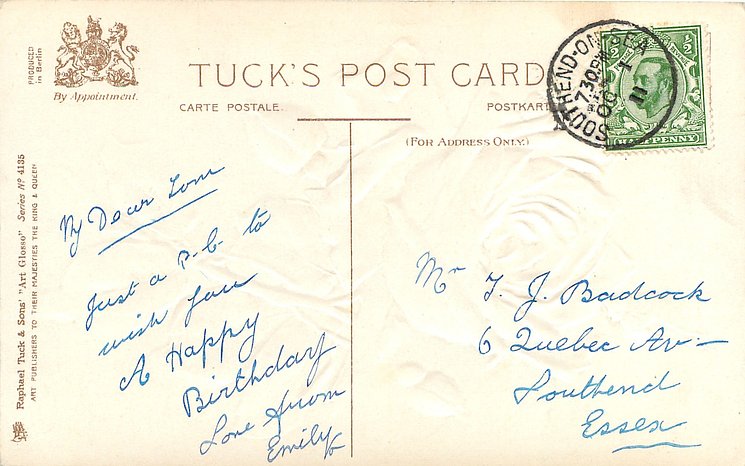 PRODUCED
in Berlin
By Appointment.
TUCK'S POST CARD
CARTE POSTALE.
POSTKART
(FOR ADDRESS ONLY.)
SOUTHEND-ON-SEA
7.30 PM
OC 1
11
½
½
PENNY
Raphael Tuck & Sons' "Art Glosso" Series Nº 4135
ART PUBLISHERS TO THEIR MAJESTIES THE KING & QUEEN
My Dear Tom
Just a p-c to
wish you
A Happy
Birthday
Love from
Emily
Mr T. J. Badcock
6 Quebec Av-
Southend
Essex